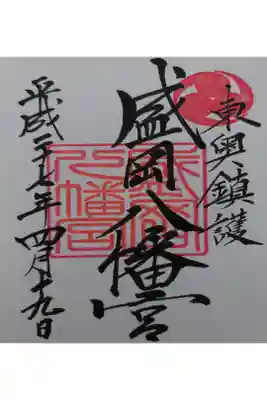 東奥鎮護
盛岡八幡宮
平成二十七年四月十九日